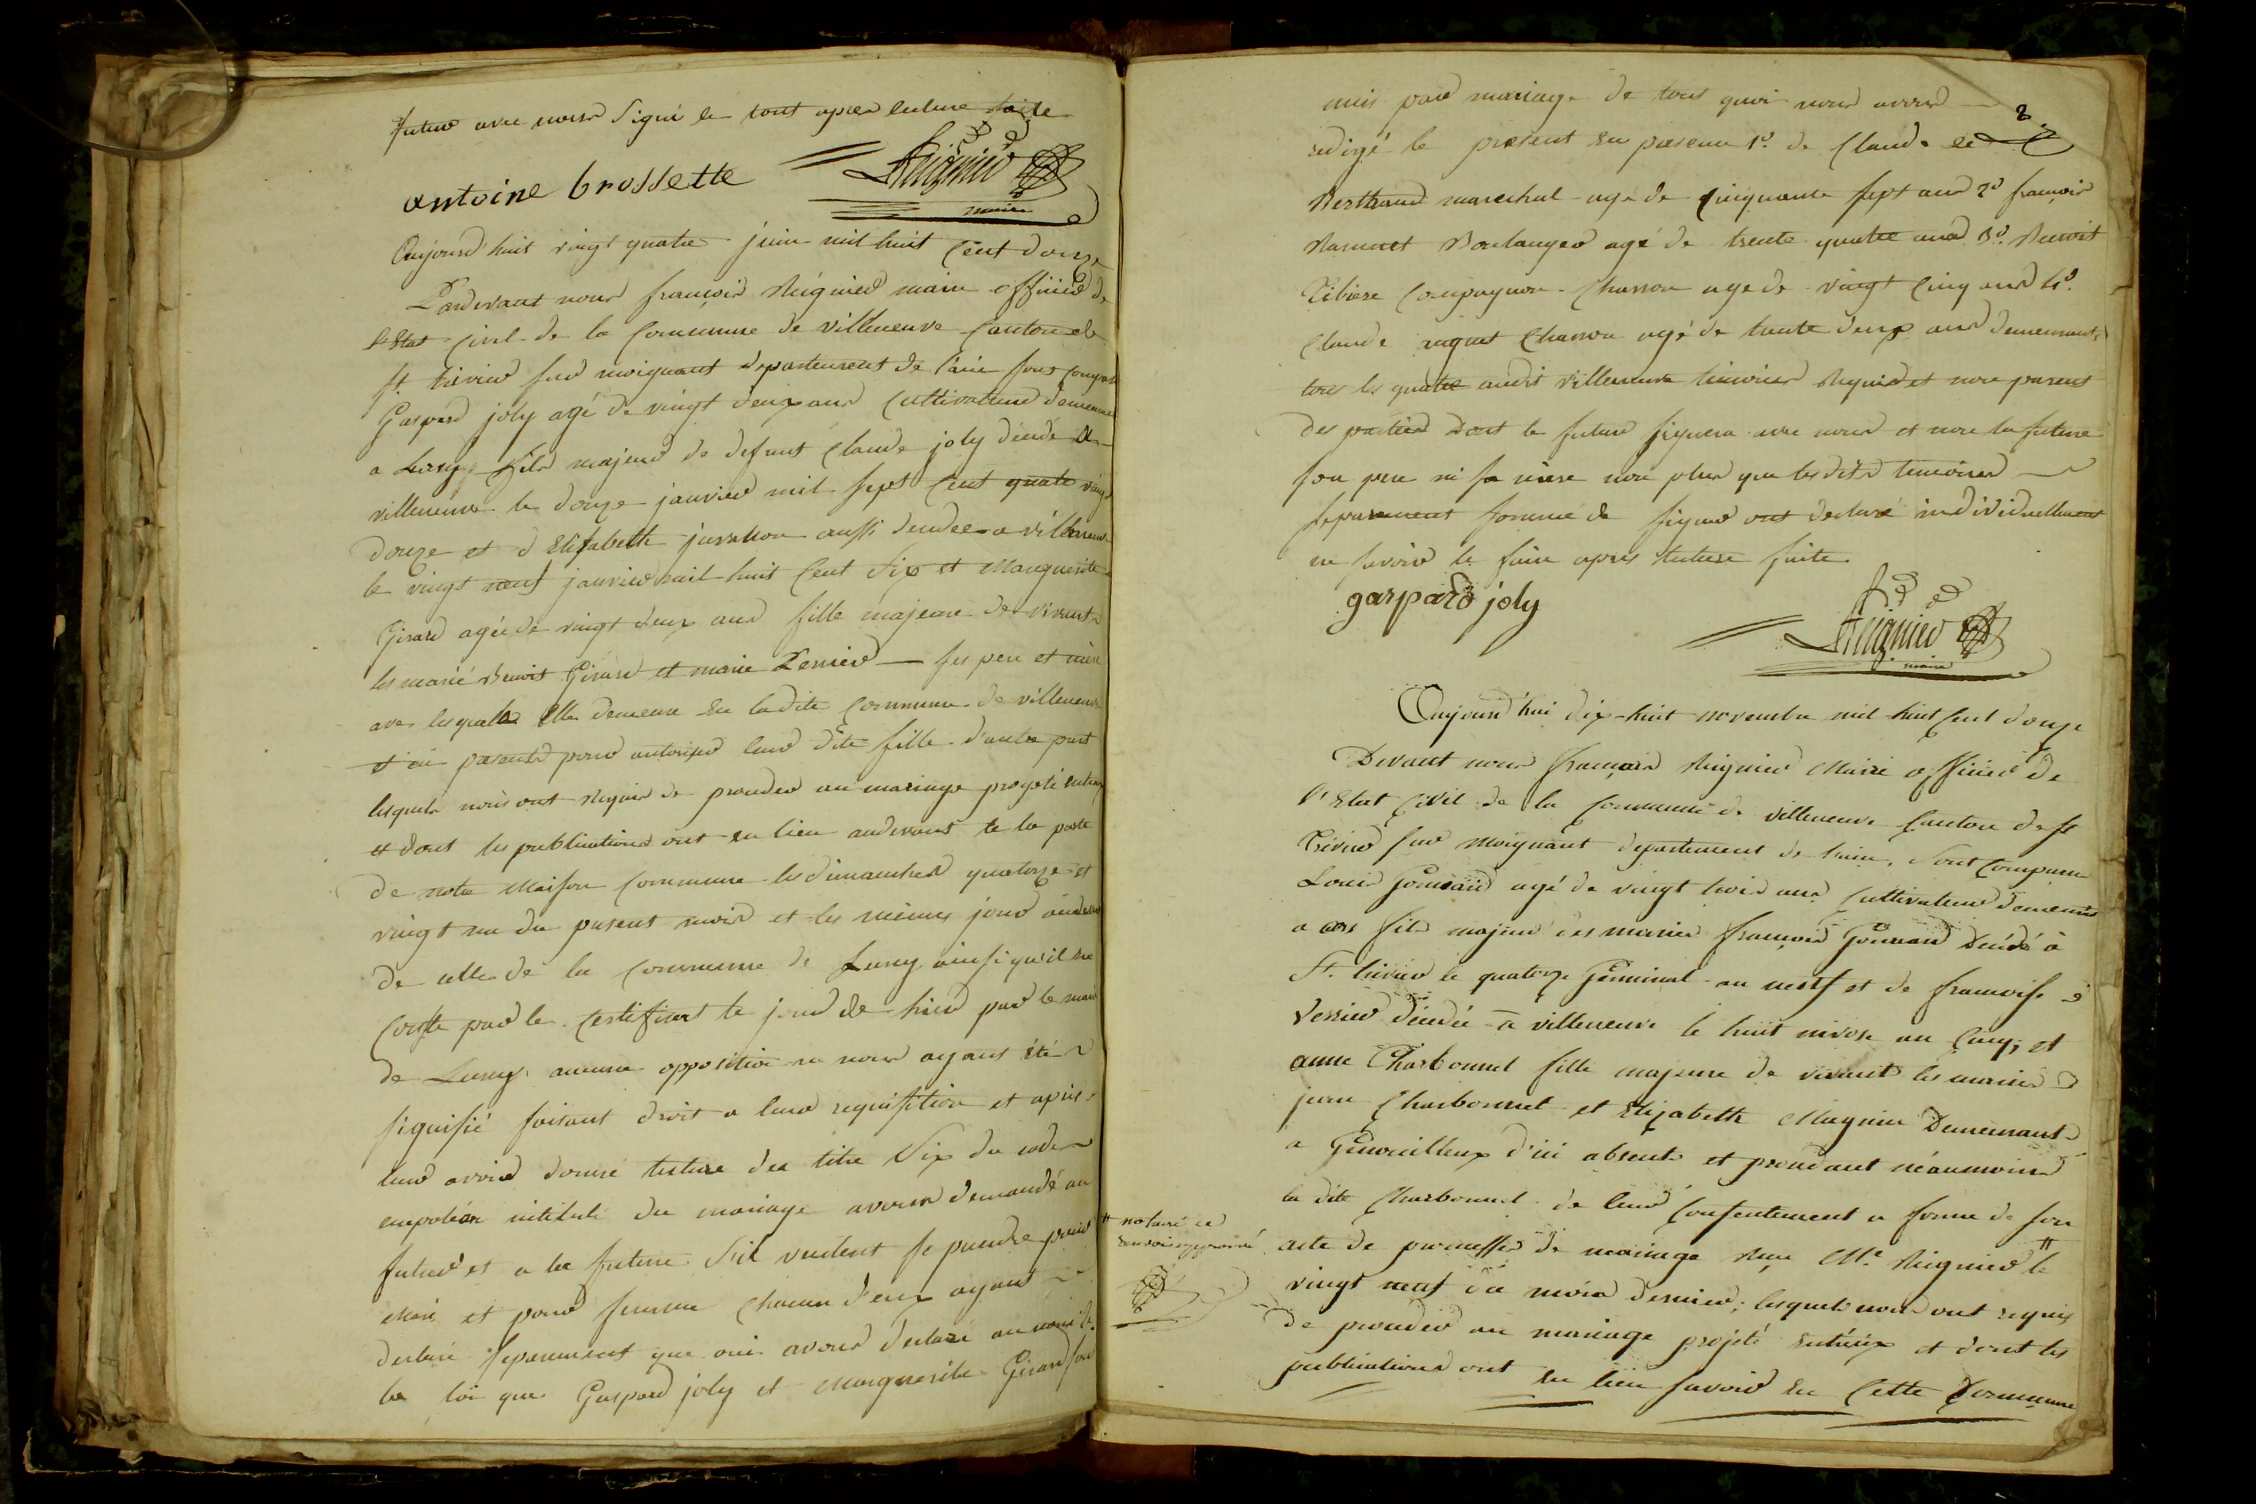 futur avec nous signé le tout apres lecture faite
antoine brossette
Reignier
maire
Aujourd'huit vingt quatre juin mil huit cent douze
Pardevant nous françois Reignier maire officier de
l'Etat Civil de la Commune de villeneuve Canton de
St. trivier sur moignant departement de l'ain sont comparu
Gaspard joly agé de vingt deux ans Cultivateur demeurant
a Lurcy fils majeur de defunt Claude joly décédé a
villeneuve le douze janvier mil sept cent quatre vingt
douze et d'Elisabeth aussi décédée a villeneuve
le vingt neuf janvier mil huit cent six et Marguerite
Girard agée de vingt deux ans fille majeure de vivants
les marié Benoit Girard et marie Perrier — ses pere et mère
avec lesquels Elle demeure en la dite Commune de villeneuve
et ici presents pour autoriser leur dite fille d'autre part
lesquels nous ont requis de proceder au mariage projeté entreux
et dont les publications ont eu lieu audevant de la porte
de notre Maison Commune les dimanches quatorze et
vingt un du present mois et les mêmes jour audevant
de celle de la Commune de Lurcy ainsi qu'il me
conste par le Certificat le jour de hier par le maire
de Lurcy. aucune opposition ne nous ayant été
signifié faisant droit a leur requisition et après
leur avoir donné lecture du titre Six du code
napoléon intitulé du mariage avons demandé au
futur et a la future s'il veulent se prendre pour
Mari et pour femme Chacun d'eux ayant
declaré separement que oui avons declaré au nom de
la loi que Gaspard joly et Marguerite Girard sont
unis par mariage de tous quoi nous avons
redigé le present en presence 1o. de Claude
8
Berthaud marechal agé de cinquante sept ans 2o françois
Boulanger agé de trente quatre ans 3o. Benoit
Tibiere Compagnon Charron age de vingt cinq ans 4o.
Claude Charron agé de trente deux ans demeurants
tous les quatre audit villeneuve temoins requis et non parent
des parties Dont le futur signera avec nous et non la future
son pere ni sa mère non plus que les dits temoins
separement sommé de signer ont declaré individuellement
ne savoir le faire après lecture faite
gaspard joly
Reignier
maire
Aujourd'hui dix-huit novembre mil huit cent douze
Devant nous françois Reignier Maire officier de
l'Etat Civil de la Commune de villeneuve Canton de St
Trivier sur Moignant departement de l'ain, Sont comparu
Louis Gouvard agé de vingt trois ans Cultivateur demeurant
a ars fils majeur des mariés françois Gouvard décédé à
St. trivier le quatorze Germinal an neuf et de francoise
Verrier décédée à villeneuve le huit nivose an Cinq, et
anne Charbonnet fille majeure de vivant les mariés
jean Charbonnet et Elizabeth Magnin Demeurant
a Genouilleux d'ici absents et procedant néaumoins
la dite Charbonnet de leur Consentement a forme de son
acte de promesse de mariage Reçu Me. Reignier # le
# notaire ce
renvoi approuvé
vingt neuf du mois dernier; lesquels nous ont requis
de proceder au mariage projeté entreux et dont les
publications ont eu lieu savoir en Cette Commune